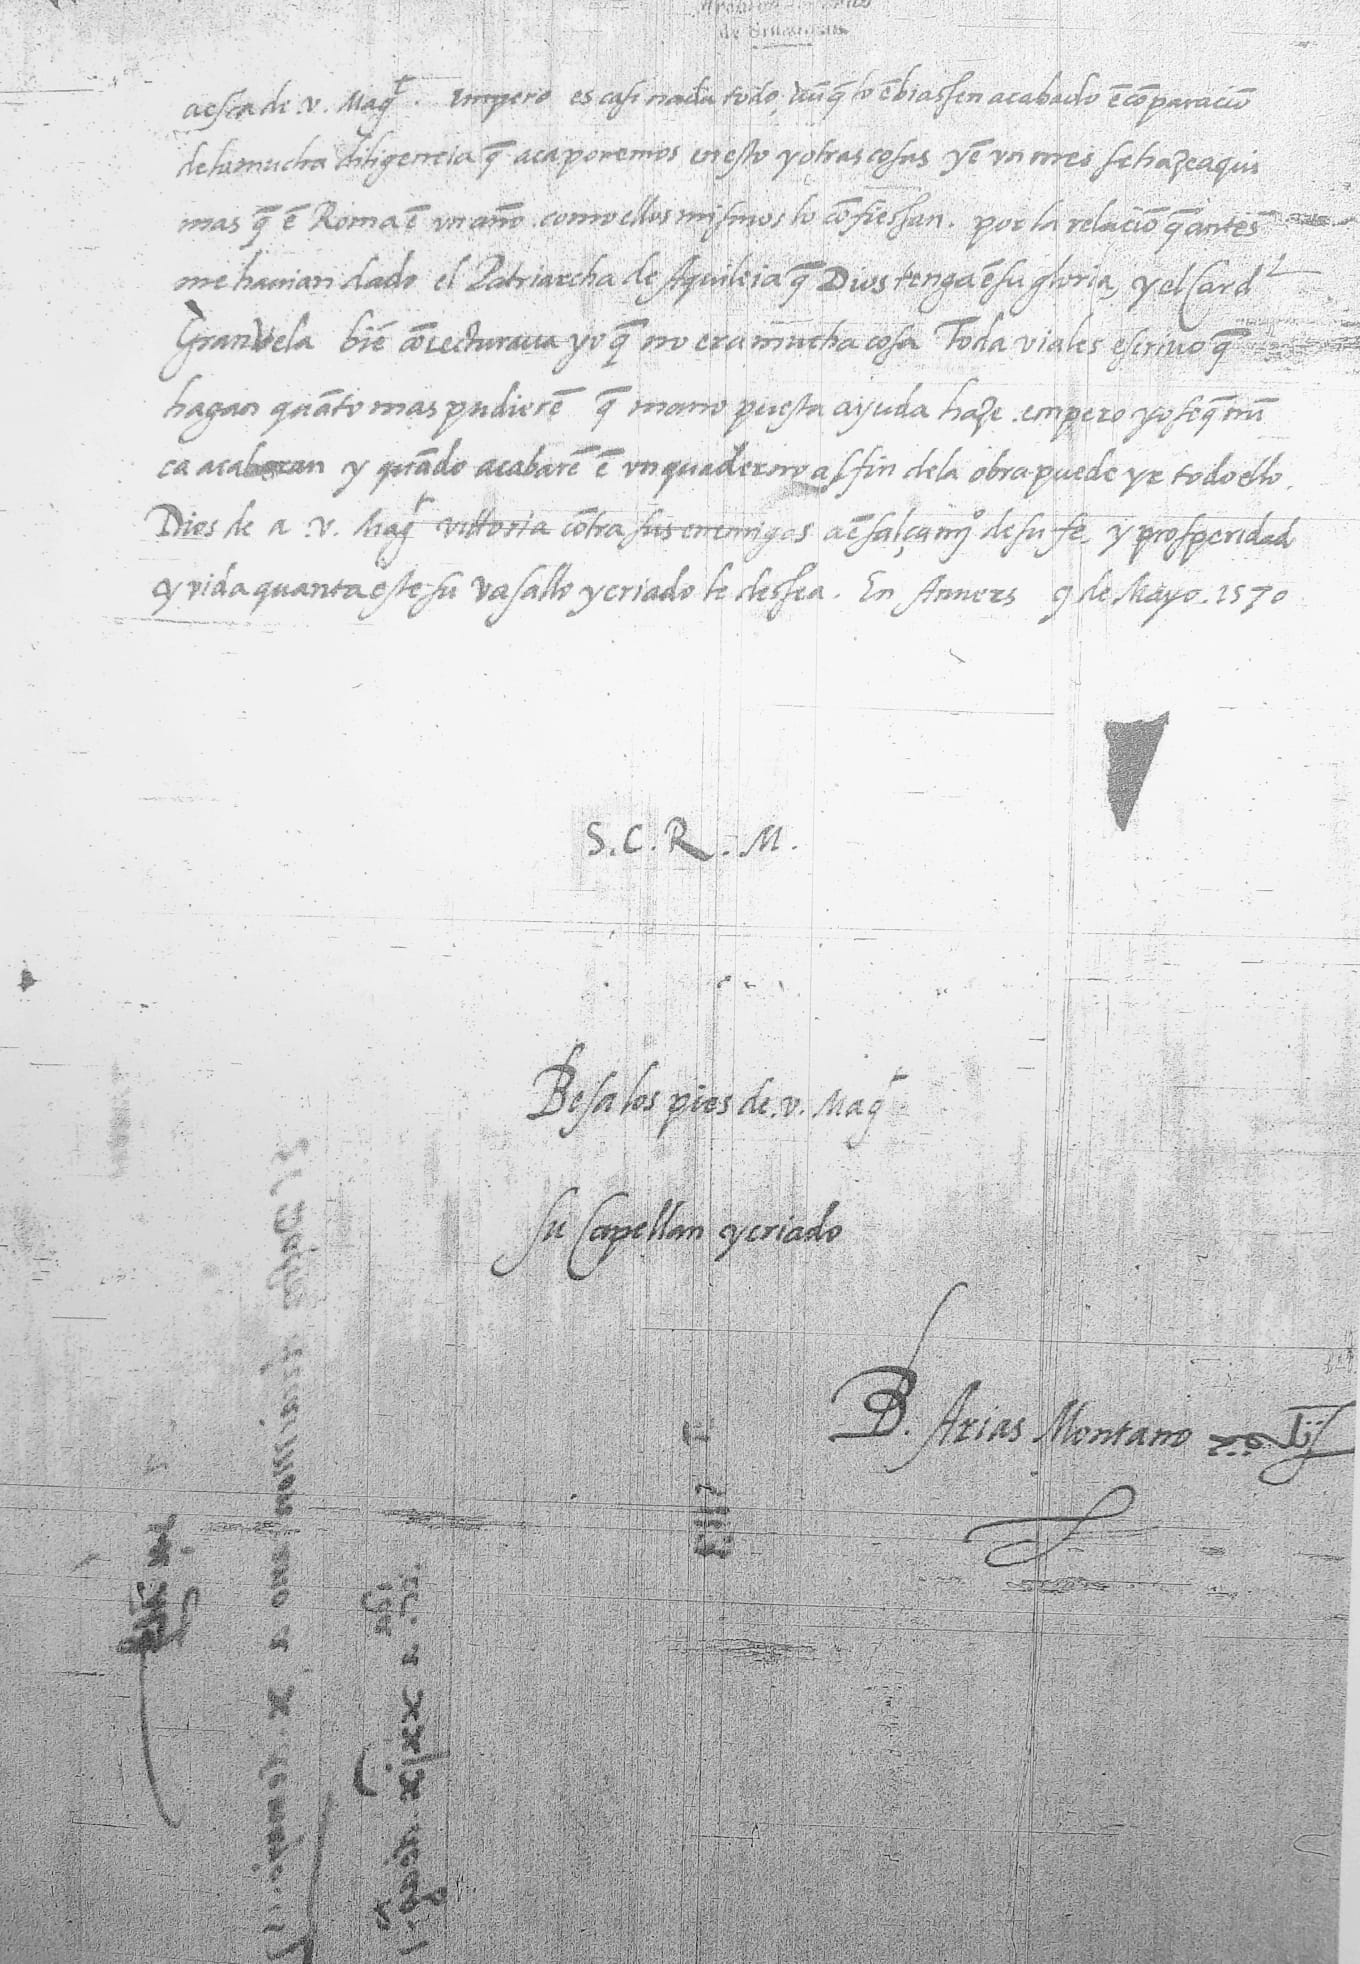 de Simancas
a esta de .v. Magᵗ. Empero es casi nada todo, aūq̄ lo ēbiassen acabado ē cōparaciō
de la mucha diligencia q̄ aca ponemos en esto y otras cosas yē un mes se haze aqui
mas q̄ ē Roma ē un año. como ellos mismos lo cōfiessan. por la relaciō q̄ antes
me hauian dado el Patriarcha de Aquileia q̄ Dios tenga ē su gloria, y el Cardˡ
Granvela biē cōiecturaua yo q̄ no era mucha cosa Toda via les escriuo q̄
hagan quāto mas pudierē q̄ mano puesta aijuda haze. empero yo se q̄ nū
ca acabaran y quādo acabarē ē un quaderno al fin dela obra puede yr todo ello.
Dios de a .v. Magᵗ vittoria cōtra sus enemigos aēsalçamᵒ de su fe, y prosperidad
y vida quanta este su vasallo y criado le dessea. En Anvers 9 de Mayo. 1570
S. C. R. M.
Besa los pies de .v. Magᵗ
su Capellan y criado
B. Arias Montano